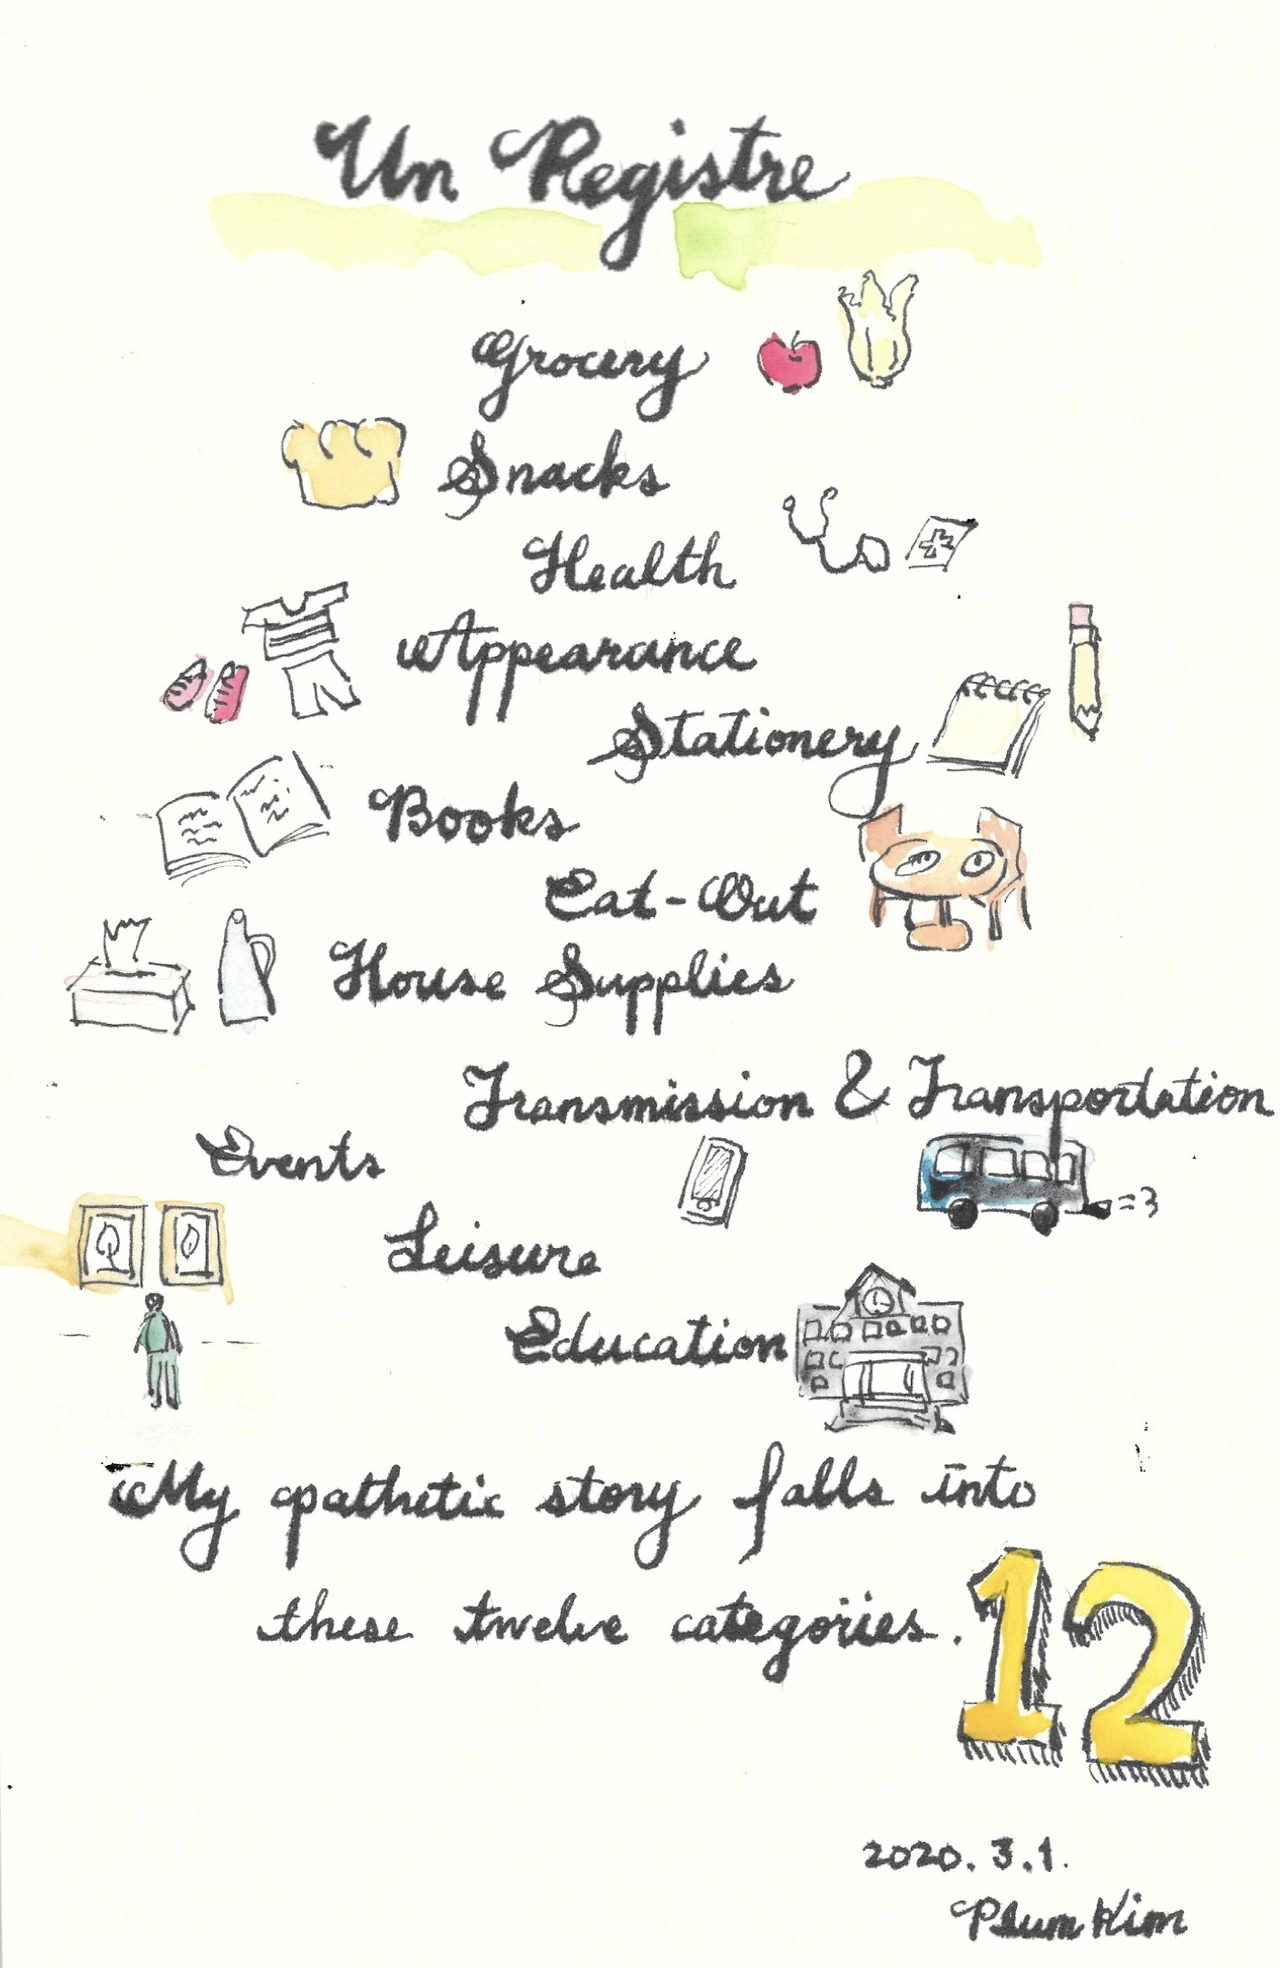 Un Registre
Grocery
Snacks
Health
Appearance
Stationery
Books
Eat-Out
House Supplies
Transmission & Transportation
Events
Leisure
Education
My pathetic story falls into
these twelve categories.
12
2020.3.1.
Plum Kim